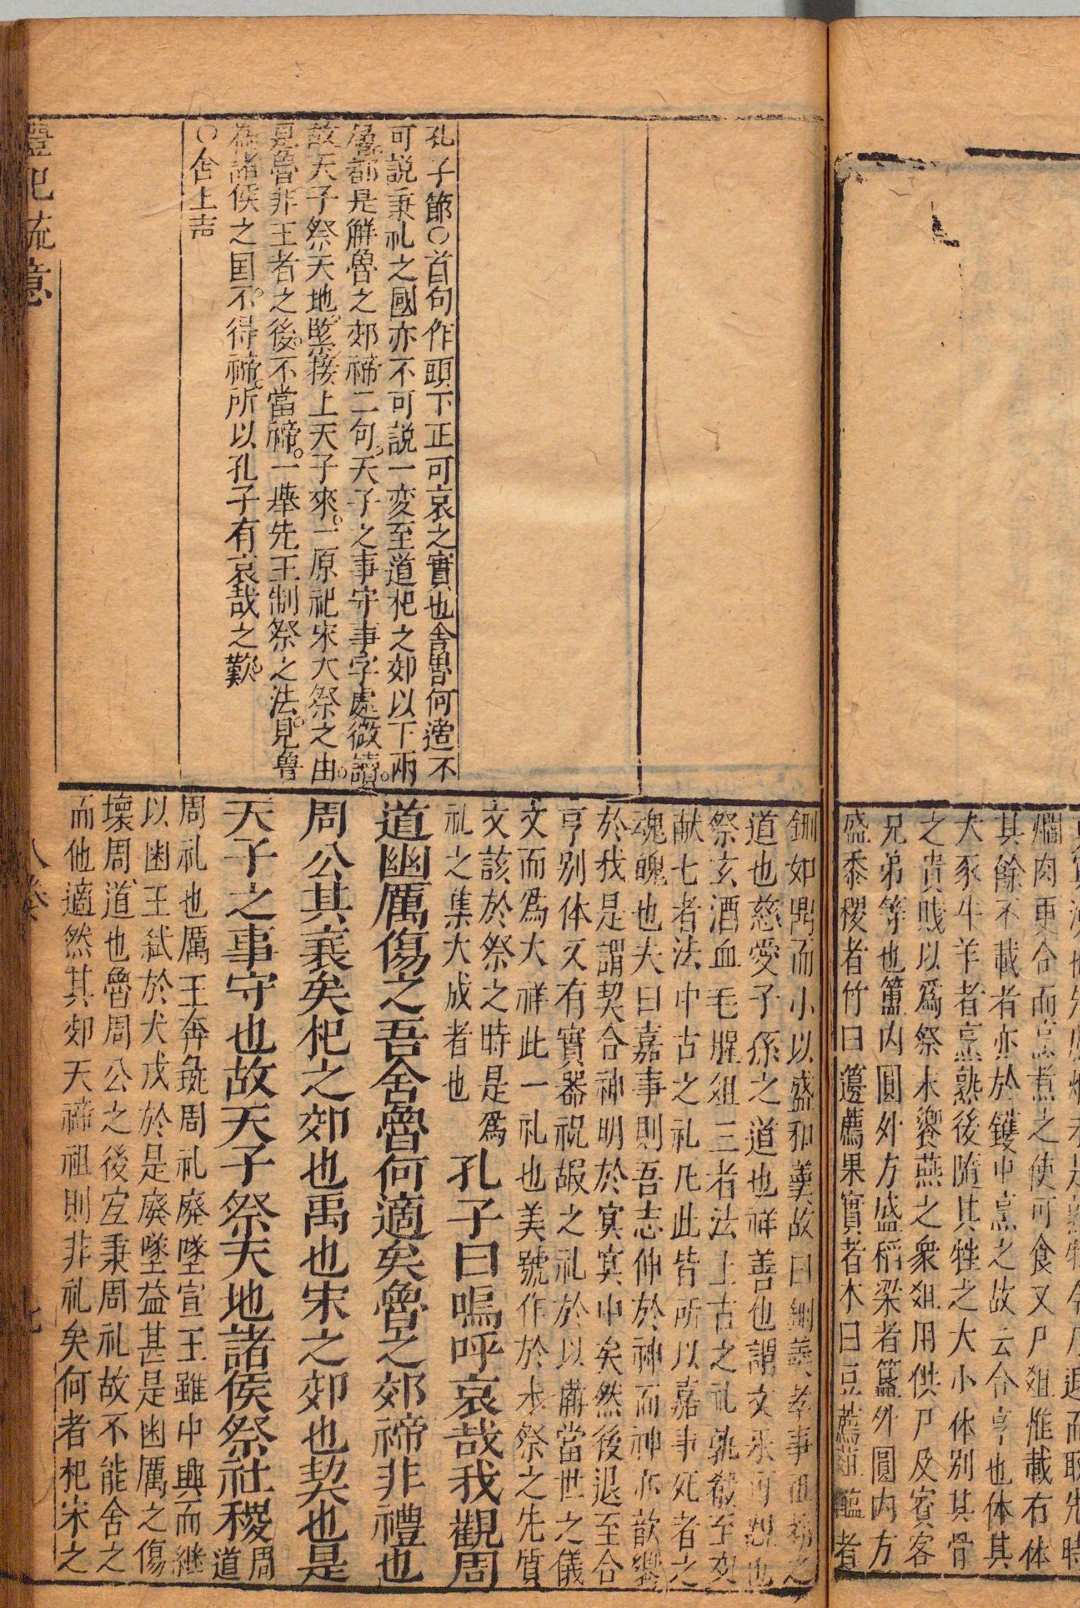 其餘不載者亦於鑊中烹之故云合亨也体其
犬豕牛羊者烹熟後隨其牲之大小体別其骨
之貴賤以爲祭末饗燕之衆俎用供尸及賓客
兄弟等也簠内圓外方盛稻梁者簋外圓内方
盛黍稷者竹曰籩薦果實者木曰豆薦葅醢者
孔子節〇首句作頭下正可哀之實也舍魯何適不
可説秉礼之國亦不可説一变至道杞之郊以下兩
層都是觧魯之郊禘二句天子之事守事字處微讀
故天子祭天地緊接上天子來一原祀宋大祭之由
見魯非王者之後不當禘一舉先王制祭之法見魯
為諸侯之国不得禘所以孔子有哀哉之歎
〇舍上吉
鉶如鼎而小以盛和羹故曰鉶羹孝事祖祢之
道也慈愛子孫之道也祥善也謂文
祭玄酒血毛腥俎三者法上古之礼孰殽至
献七者法中古之礼凡此皆所以嘉事死者之
魂魄也夫曰嘉事則吾志仰於神而神亦歆饗
於我是謂契合神明於寞寞中矣然後退至合
亨别体又有實器祝嘏之礼於以備當世之儀
文而爲大祥此一礼也美號作於未祭之先質
文該於祭之時是爲
礼之集大成者也
孔子曰嗚呼哀哉我觀周
道幽厲傷之吾舍魯何適矣魯之郊禘非禮也
周公其衰矣杞之郊也禹也宋之郊也契也是
天子之事守也故天子祭天地諸侯祭社稷周道
周礼也厲王奔彘周礼廢墜宣王雖中興而継
以幽王弑於犬戎於是廢墜益甚是幽厲之傷
壞周道也魯周公之後宜秉周礼故不能舍之
而他適然其郊天禘祖則非礼矣何者杞宋之
禮記疏意
八卷